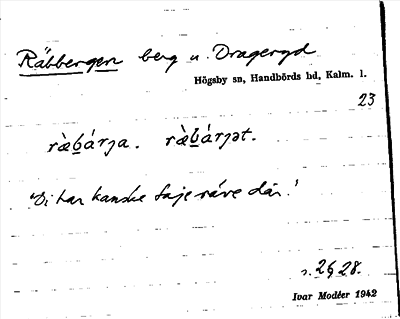 Räbbergen berg u. Drageryd
Högsby sn, Handbörds hd, Kalm. l.
23
ràbárɟa. ràbárɟət.
"Di har kanske faje ráve där."
s. 2§ 28.
Ivar Modéer 1942